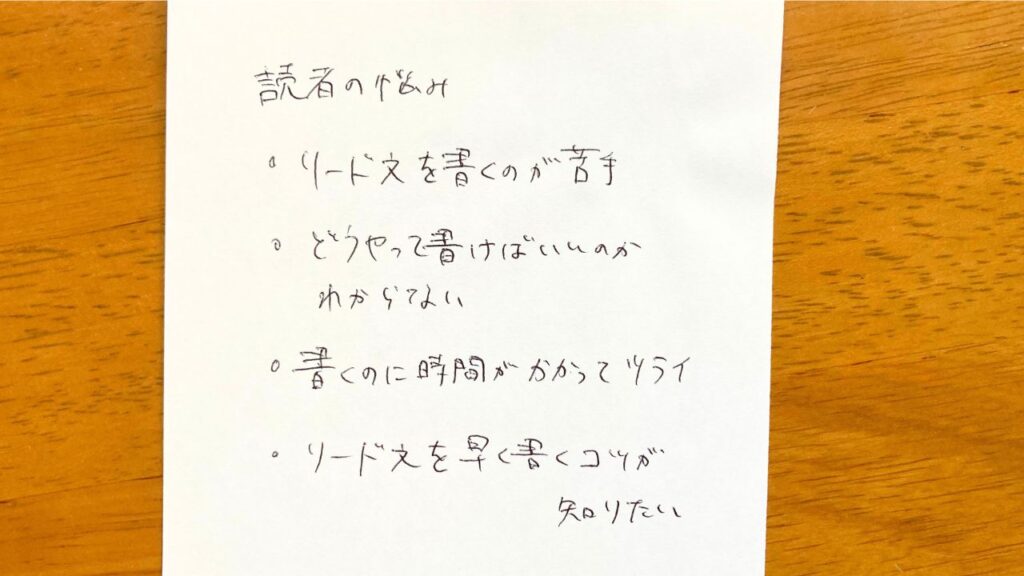 読者の悩み
。リード文を書くのが苦手
。どうやって書けばいいのか
わからない
。書くのに時間がかかってツライ
。リード文を早く書くコツが
知りたい